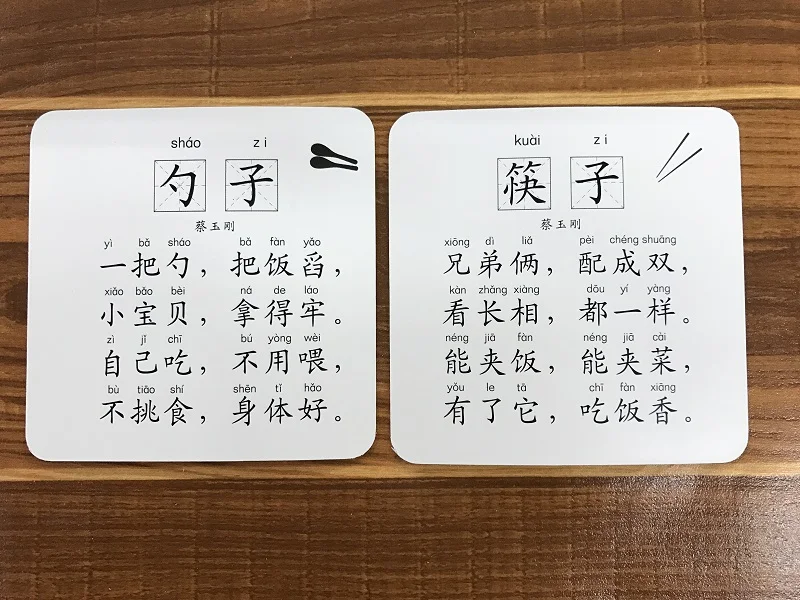 sháo zi
勺子
蔡玉刚
yì bǎ sháo bǎ fàn yǎo
一把勺，把饭舀，
xiǎo bǎo bèi ná de láo
小宝贝，拿得牢。
zì jǐ chī bú yòng wèi
自己吃，不用喂，
bù tiāo shí shēn tǐ hǎo
不挑食，身体好。
kuài zi
筷子
蔡玉刚
xiōng dì liǎ pèi chéng shuāng
兄弟俩，配成双，
kàn zhǎng xiàng dōu yí yàng
看长相，都一样。
néng jiā fàn néng jiā cài
能夹饭，能夹菜，
yǒu le tā chī fàn xiāng
有了它，吃饭香。